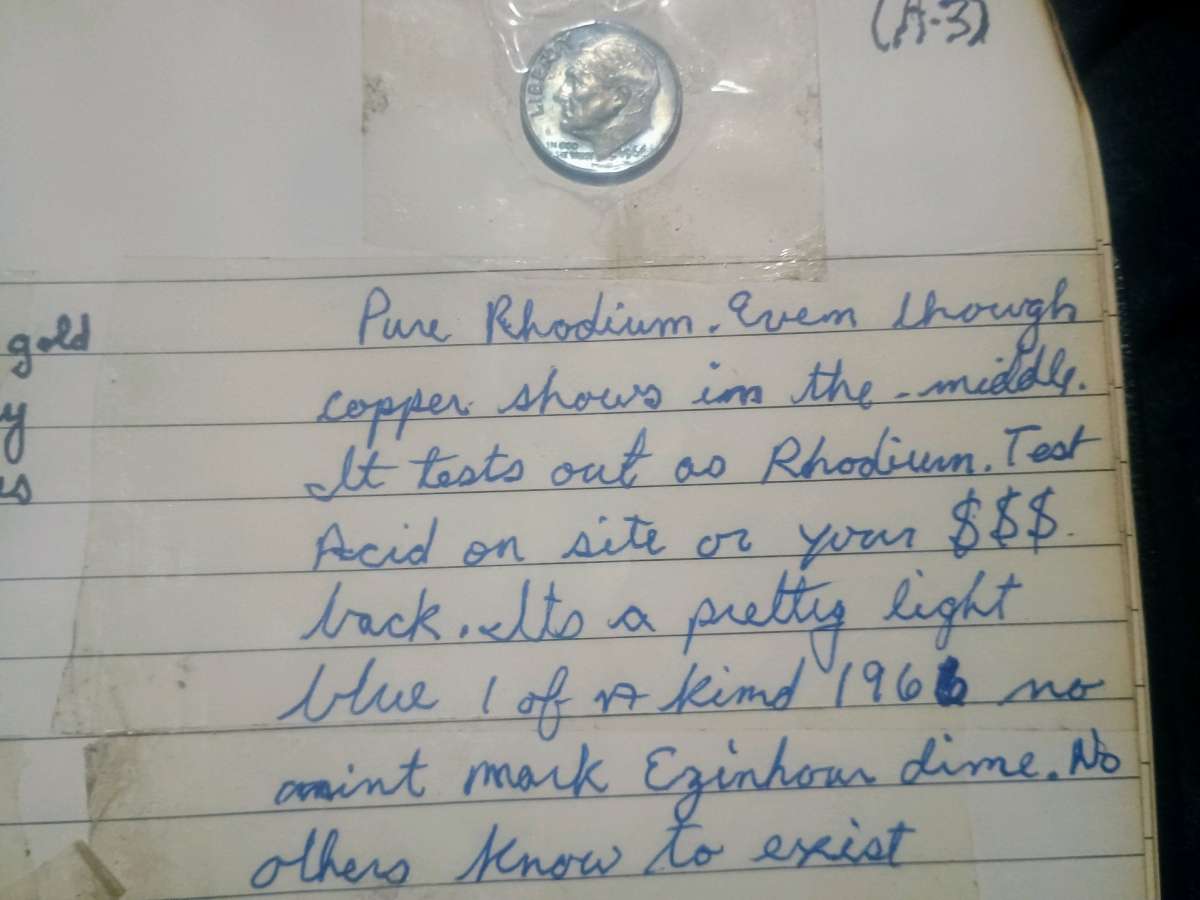 (A-3)
LIBERTY
IN GOD
WE TRUST
Pure Rhodium. Even though
gold
copper shows in the middle.
y
It tests out as Rhodium. Test
es
Acid on site or your $$$.
back. Its a pretty light
blue 1 of A kind 1966 no
mint mark Ezinhour dime. No
others know to exist